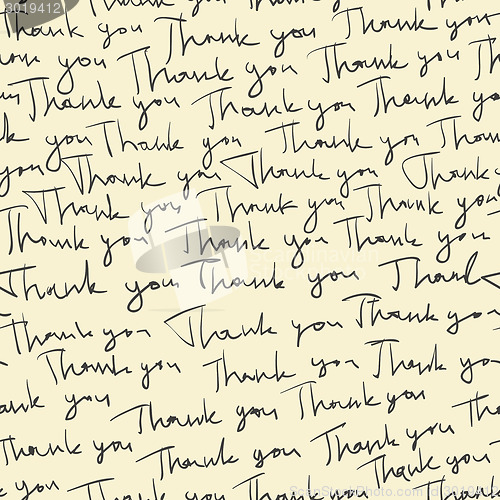 3019412
Thank you Thank you Thank you
you Thank you Thank you Thank you
Thank you Thank you Thank you
you Thank you Thank you Thank
you Thank you Thank you Thank
Thank you Thank you Thank you
Thank you Thank you Thank you
Thank you Thank you Thank
Thank you Thank you Thank you
Thank you Thank you Thank you
you Thank you Thank you
Thank you Thank you Thank you
you Thank you Thank you Thank you